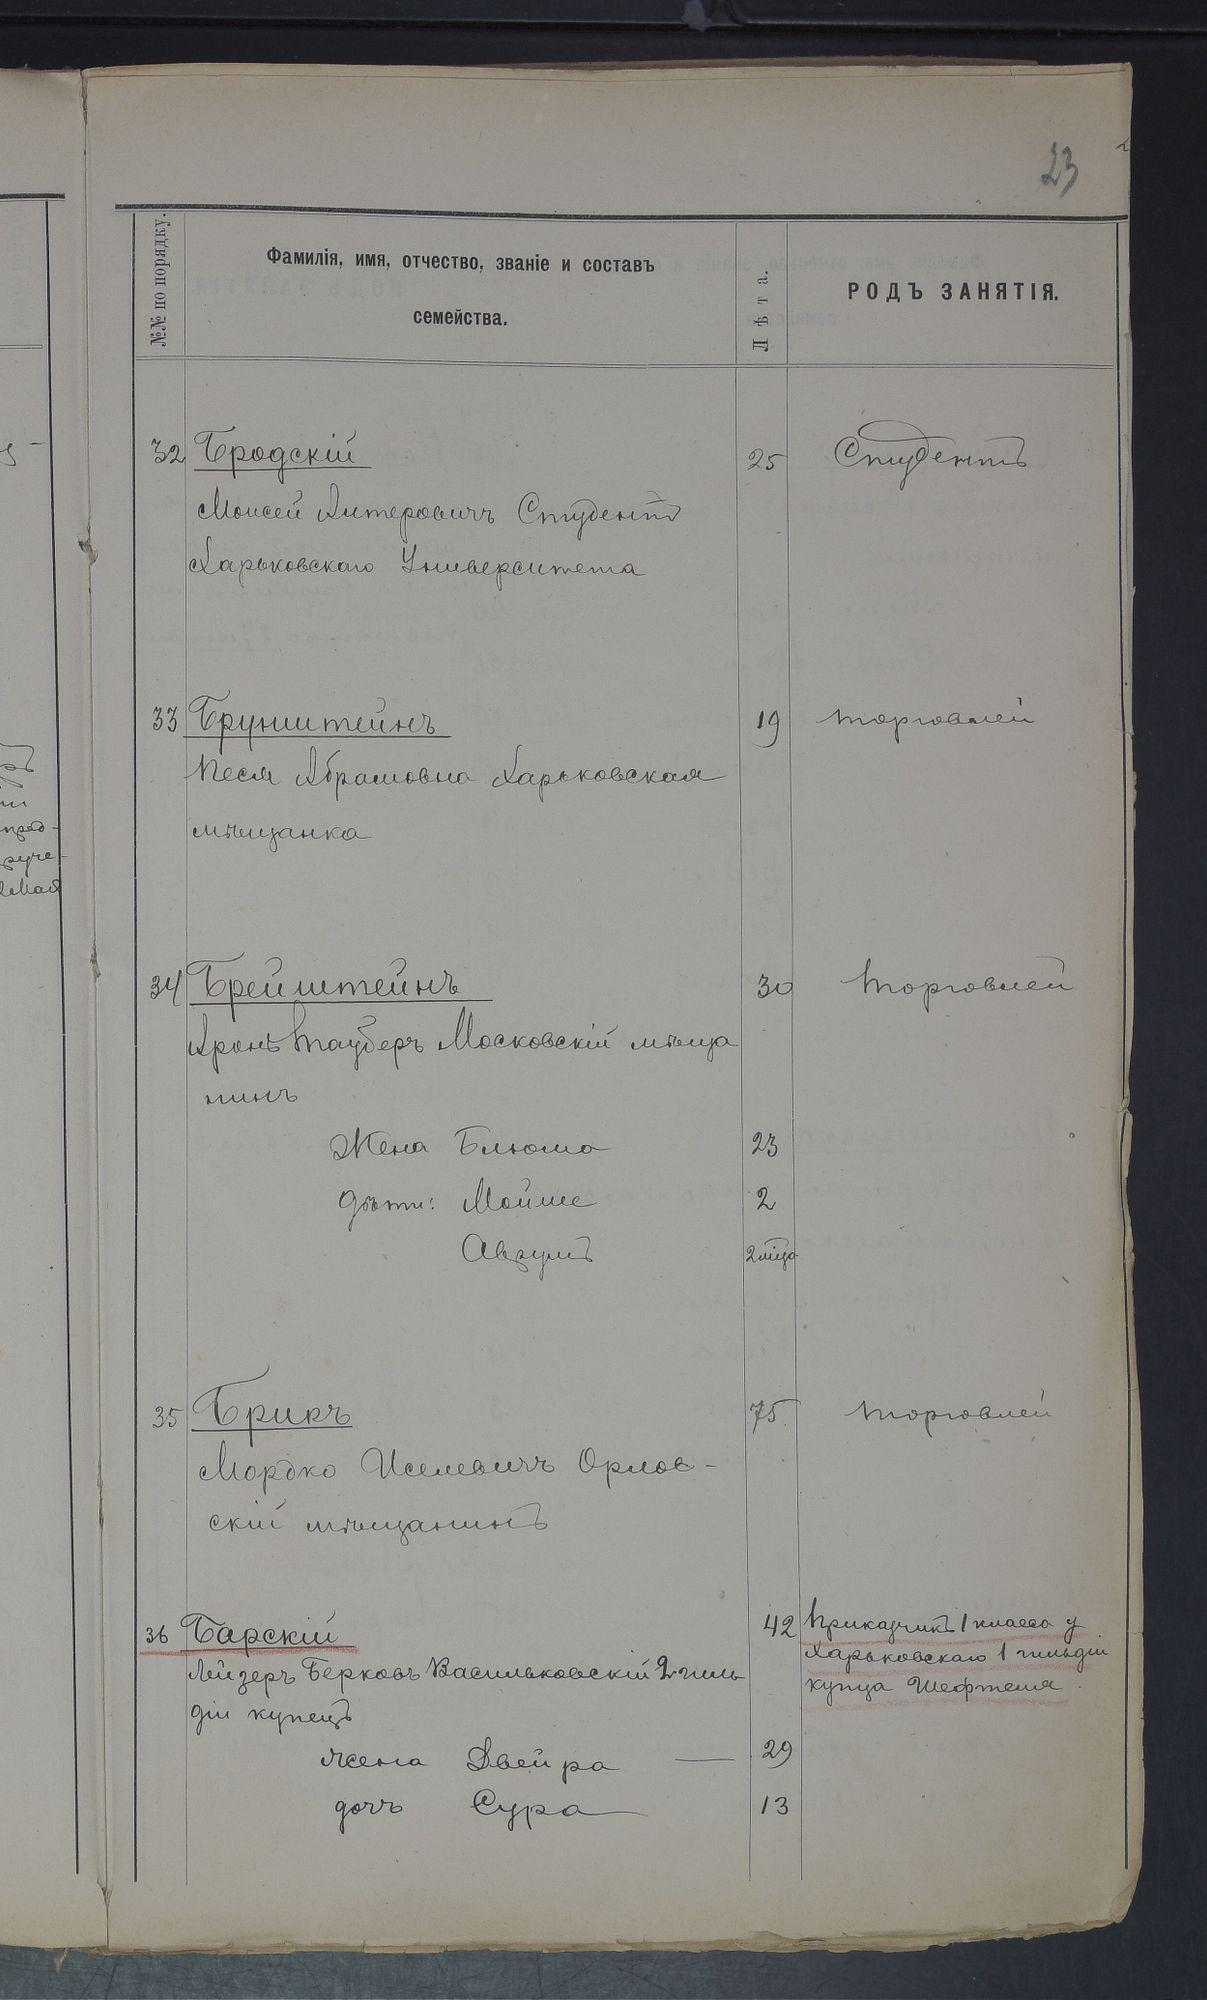 23
№№ по порядку.
Фамилія, имя, отчество, званіе и составъ
семейства.
Лѣта.
РОДЪ ЗАНЯТІЯ.
32 Бродскій 25 Студентъ
Моисей Алтеровичъ Студентъ
Харьковскаго Университета
33 Брунштейнъ 19 торговлей
Песя Абрамовна Харьковская
мѣщанка
34 Брейштейнъ 30 торговлей
Аронъ Таубер Московскій мѣща
нинъ
Жена Блюма 23
дѣти: Мойше 2
Аврумъ 2 мѣца
35 Брикъ 75. торговлей
Мордко Иселевичъ Орлов-
скій мѣщанинъ
36 Барскій 42 Приказчикъ 1 класса у
Харьковскаго 1 гильдіи
купца Шефтеля.
Лейзеръ Берковъ Васильковскій 2 гиль
діи купецъ
жена Двейра — 29
дочь Сура 13